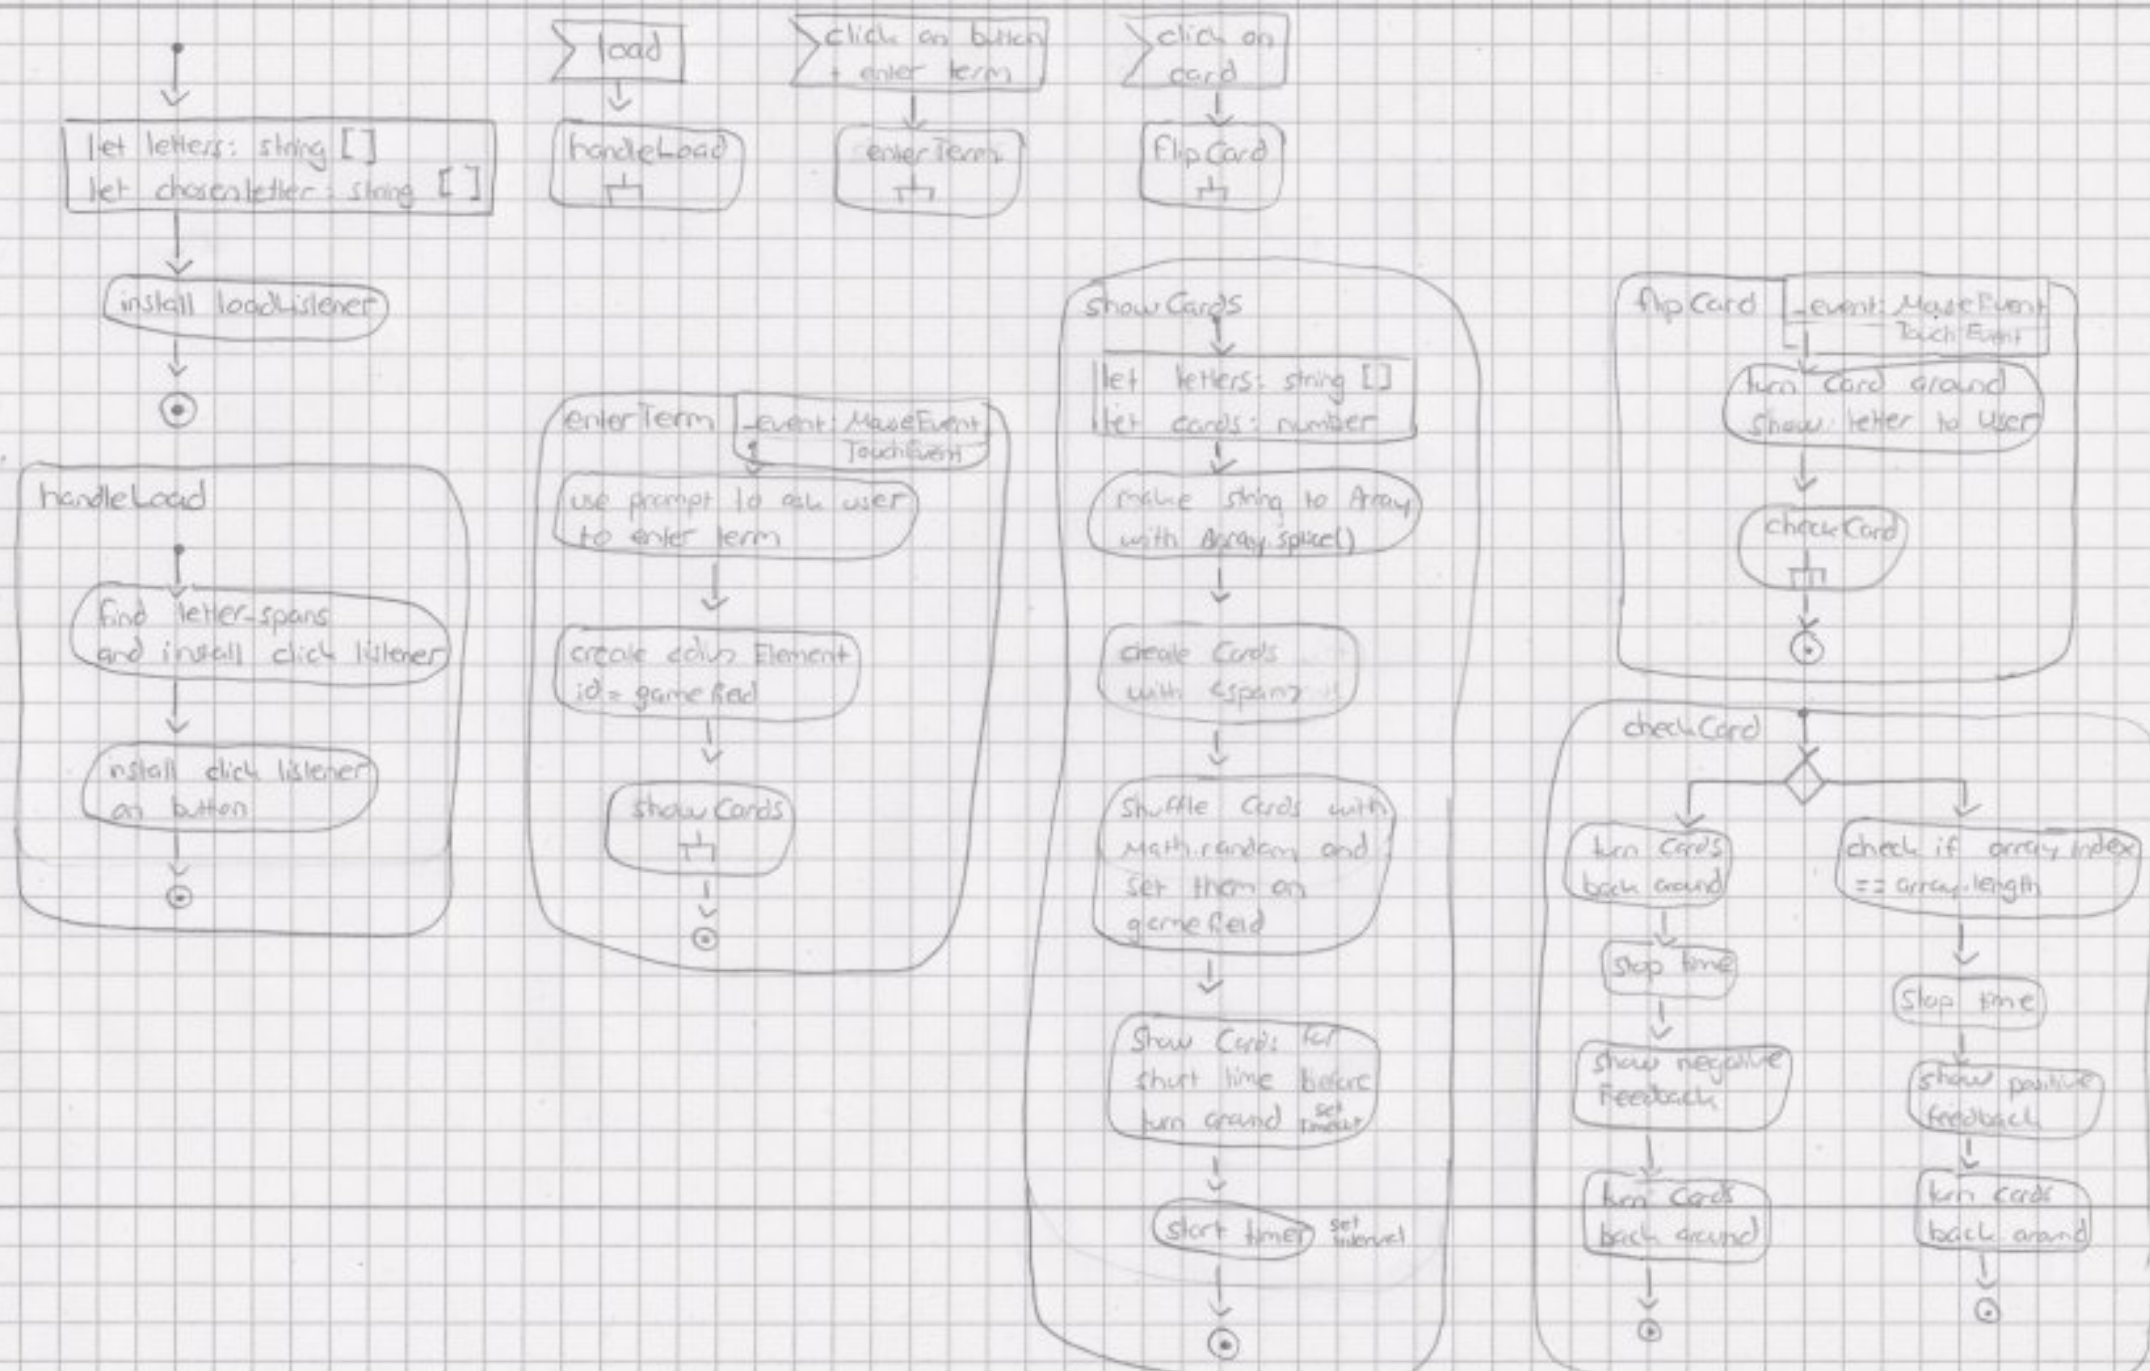 let letters: string []
let chosenletter: string []
install loadListener
load
handleLoad
click on button
+ enter term
enterTerm
click on
card
flipCard
handleLoad
find letter-spans
and install click listener
install click listener
on button
enterTerm
_event: MouseEvent
TouchEvent
use prompt to ask user
to enter term
create <div> Element
id = gamefield
showCards
showCards
let letters: string []
let cards: number
make string to Array
with Array.splice()
create Cards
with <span>
Shuffle Cards with
Math.random and
set them on
gamefield
Show Cards for
short time before
turn around set
Timeout
start timer set
interval
flipCard
_event: MouseEvent
TouchEvent
turn card around
show letter to user
checkCard
checkCard
turn Cards
back around
stop time
show negative
Feedback
turn Cards
back around
check if array index
== array.length
stop time
show positive
feedback
turn cards
back around